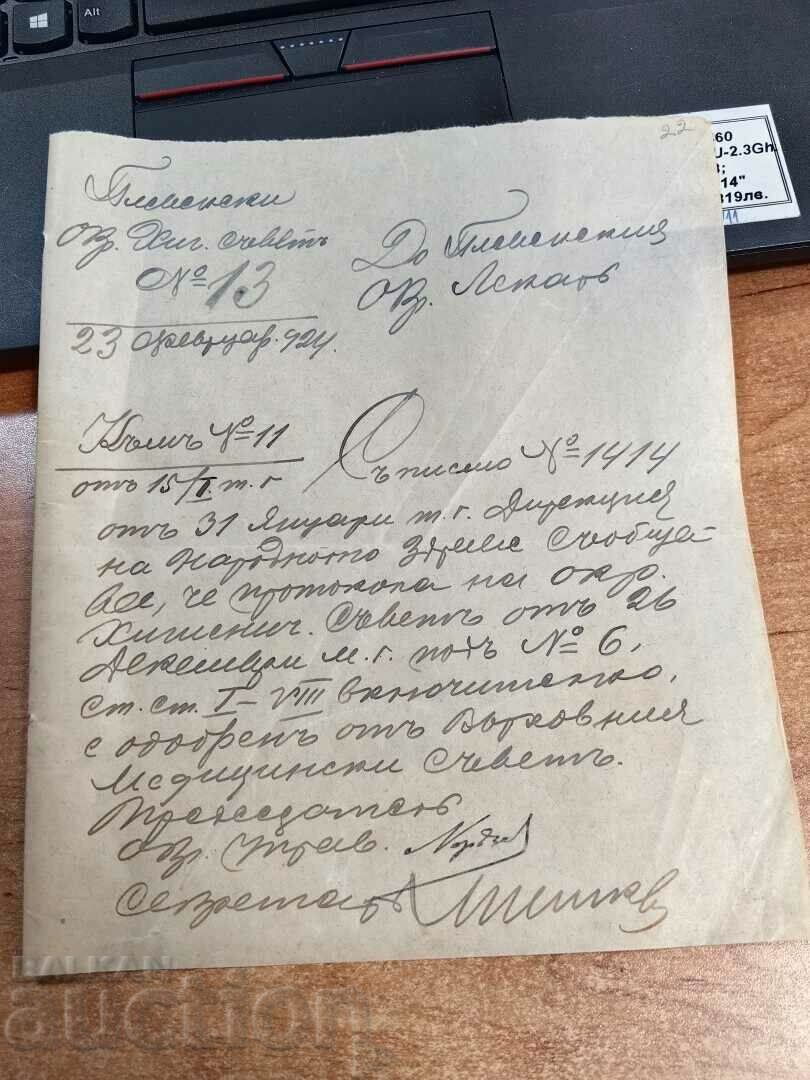 Alt
22
60
U-2.3Gh
14"
319лв.
11
Плевенски
Окр. Хиг. съветъ
№ 13
23 февруар. 924.
До Плевенския
Окр. Лекарь
Къмъ № 11
отъ 15/I. т. г
Съ писмо № 1414
отъ 31 Януари т. г. Дирекция
на Народното Здраве съобща-
ва, че протокола на окр.
Хигиенич. съветъ отъ 26
Декемврий м. г. подъ № 6,
ст. ст. I – VIII включително,
е одобренъ отъ Върховния
Медицински съветъ.
Председатель
Окр. Управ.
Секретарь
BALKAN
auction